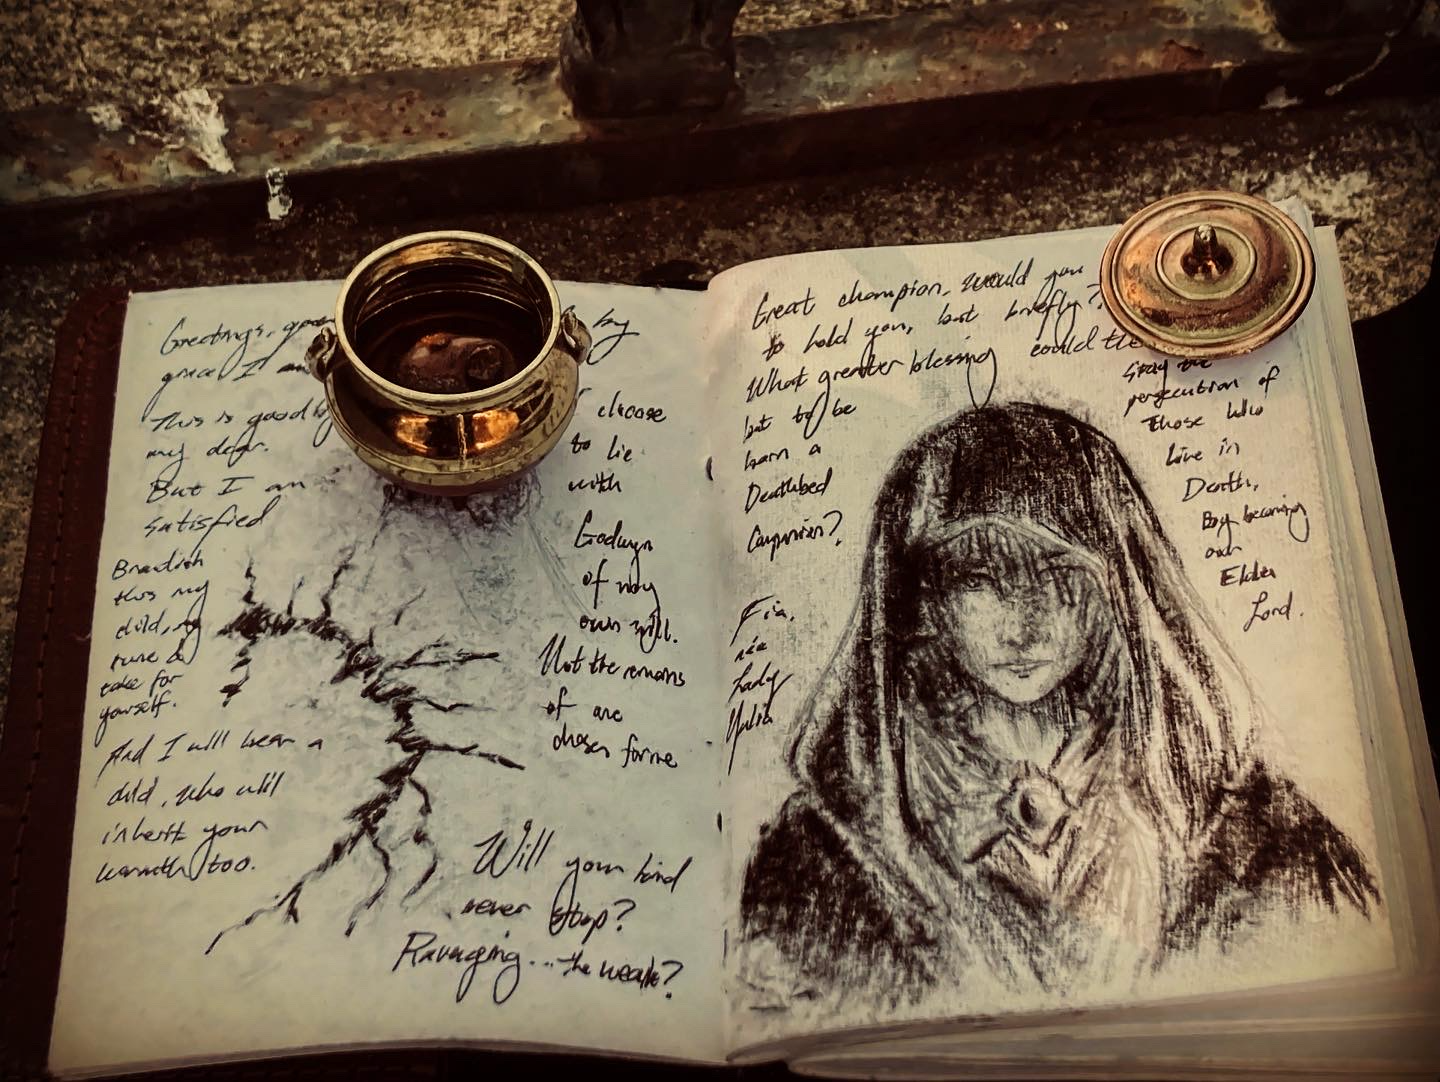 Greetings, by
grace I am
This is goodby
my dear.
But I am
satisfied
Brandish
this my
child, my
rune
take for
yourself.
And I will bear a
child, who will
inherit your
warmth too.
I choose
to lie
with
Godwyn
of my
own will.
Not the remains
of are
chosen for me
Will your kind
never stop?
Ravaging... the weak?
Great champion, would you
to hold you, but briefly?
What greater blessing could the
but to be
born a
Deathbed
Companion?
Fia,
née
Lady
Yulia
Stay the
persecution of
those who
live in
Death,
By becoming
our
Elden
Lord.